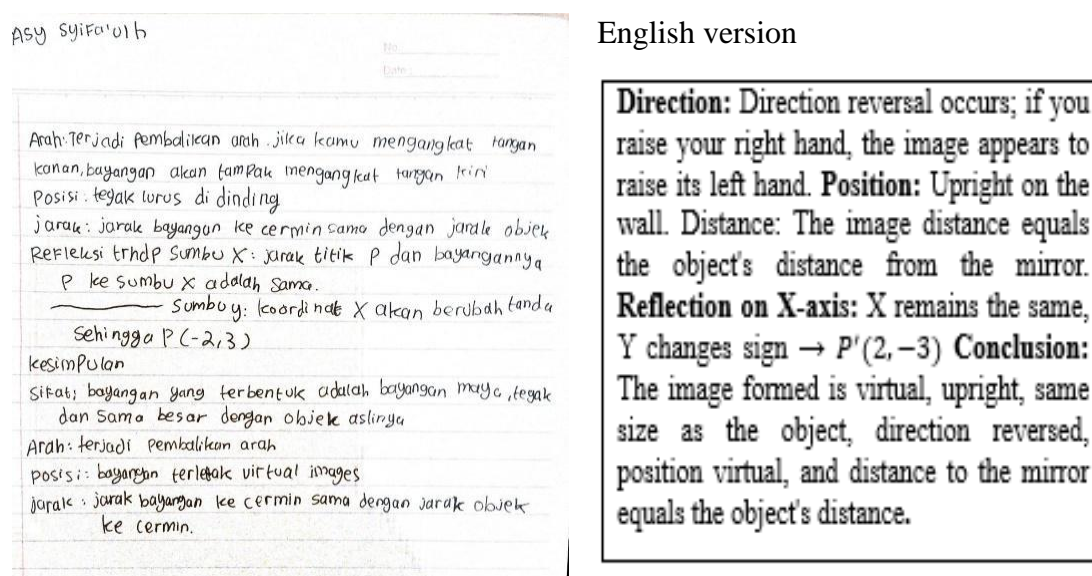 Asy Syifa'ul h
No
Date:
Arah: Terjadi Pembalikan arah. jika kamu mengangkat tangan
kanan, bayangan akan tampak mengangkat tangan kiri
Posisi: tegak lurus di dinding
jarak: jarak bayangan ke cermin sama dengan jarak objek
Refleksi trhdp Sumbu X: jarak titik P dan bayangannya
P ke sumbu X adalah sama.
Sumbu y: koordinat X akan berubah tanda
Sehingga P (-2,3)
kesimpulan
Sifat; bayangan yang terbentuk adalah bayangan maya, tegak
dan sama besar dengan objek aslinya
Arah: terjadi pembalikan arah
posisi: bayangan terletak virtual images
jarak: jarak bayangan ke cermin sama dengan jarak objek
ke cermin.
English version
Direction: Direction reversal occurs; if you
raise your right hand, the image appears to
raise its left hand. Position: Upright on the
wall. Distance: The image distance equals
the object's distance from the mirror.
Reflection on X-axis: X remains the same,
Y changes sign → P'(2,−3) Conclusion:
The image formed is virtual, upright, same
size as the object, direction reversed,
position virtual, and distance to the mirror
equals the object's distance.